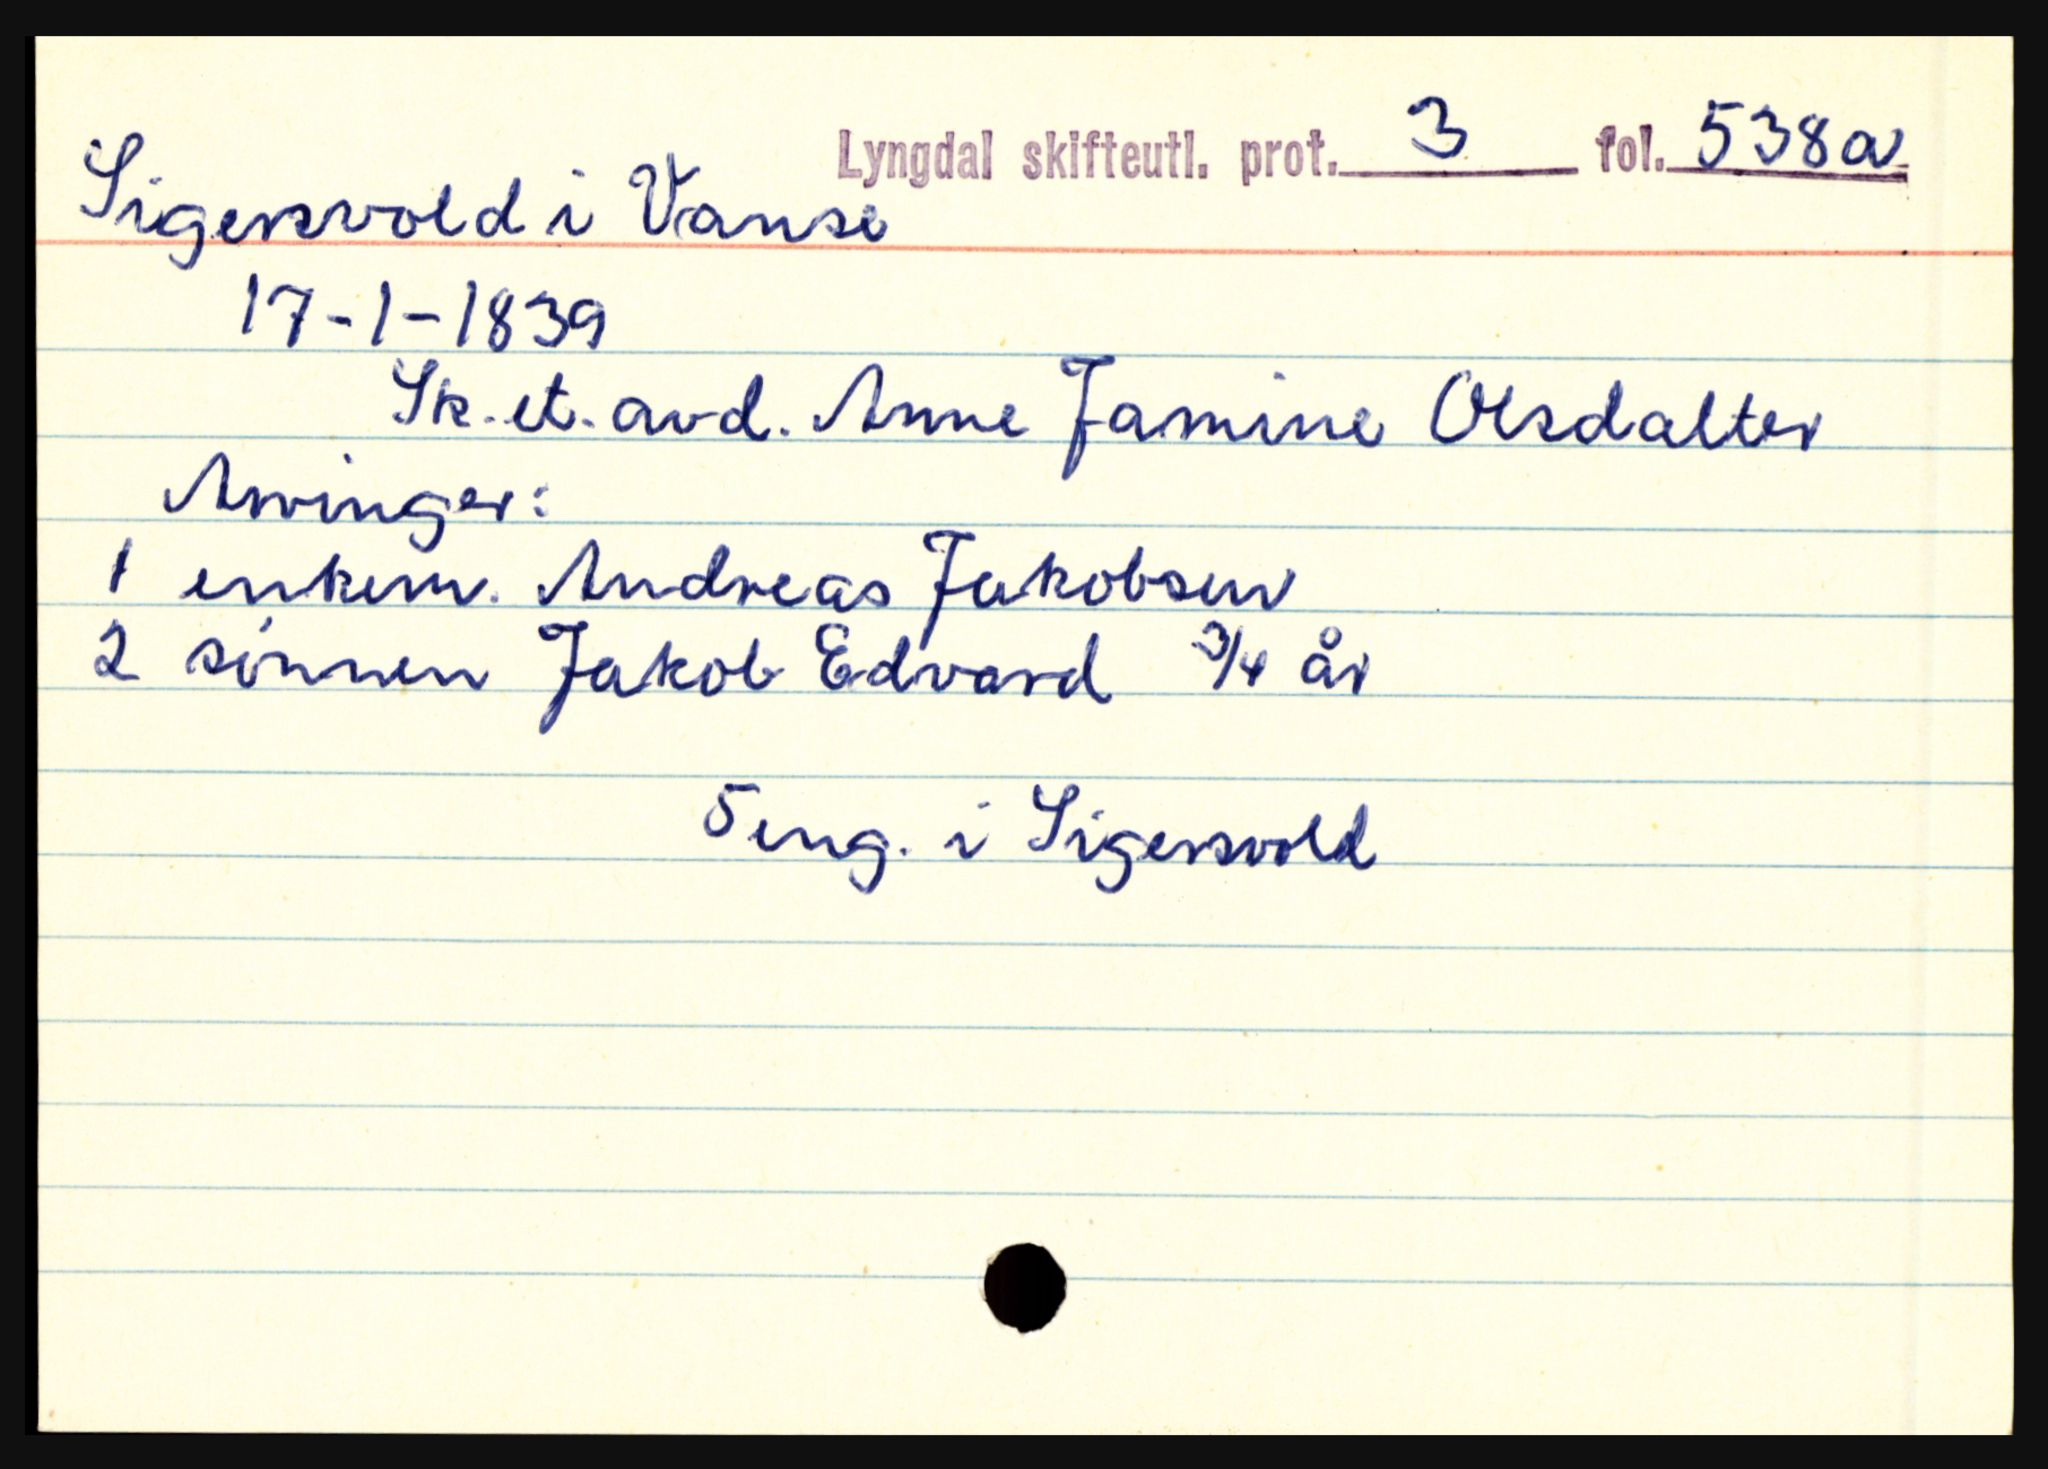 Lyngdal skifteutl. prot. 3 fol. 538a
Sigersvold i Vanse
17-1-1839
Sk. et. avd. Anne Jamine Olsdatter
Arvinger:
1 enkem. Andreas Jakobsen
2 sönnen Jakob Edvard 3/4 år
5 eng. i Sigersvold